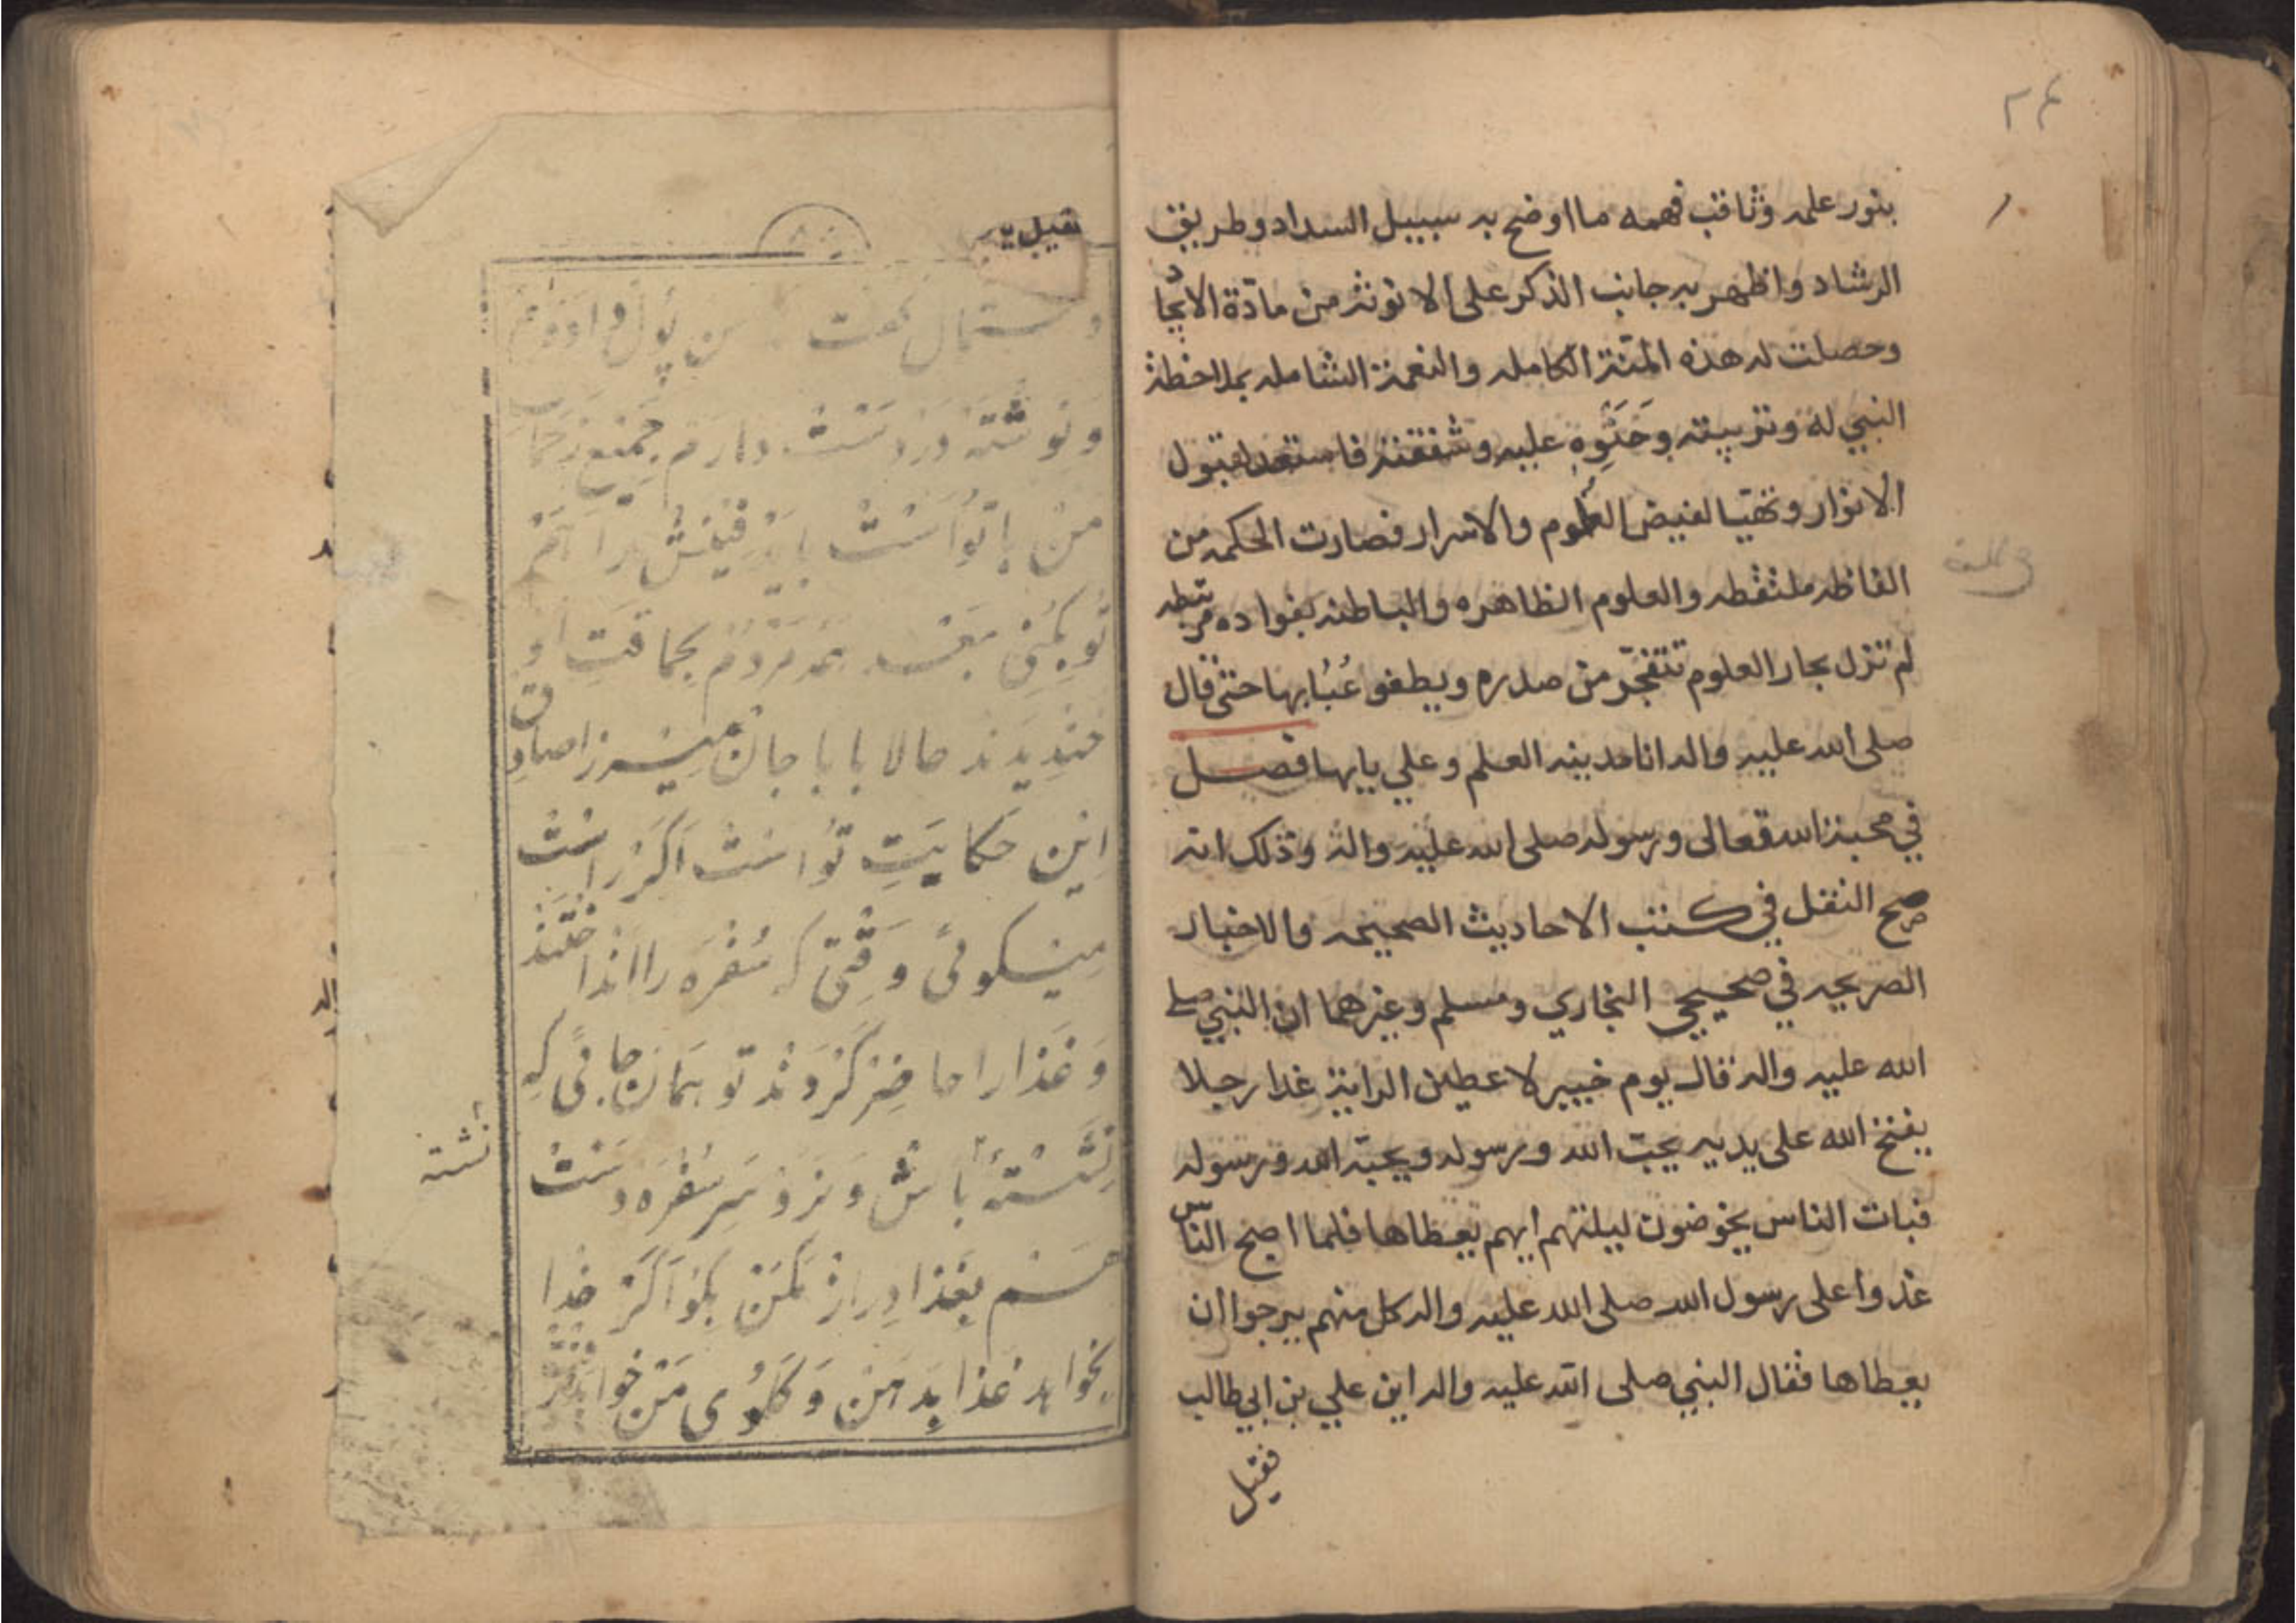 ٢٤
بنور علمه وثاقب فهمه ما اوضح به سبيل السداد وطريق
الرشاد واظهر به جانب الذكر على الانوثة من مادّة الايجاد
وحصلت له هذه المنّة الكامله والنعمة الشامله بملاحظة
النبي له وتربيته وحَنُوِّهِ عليه وشفقته فاستعد لقبول
الانوار وتهيّا لفيض العلوم والاسرار فصارت الحكمه من
الفاظه ملتقطه والعلوم الظاهره والباطنه بفواده مرتبطه
لم تزل بحار العلوم تتفجّر من صدره ويطفو عُبابها حتى قال
صلى الله عليه واله انا مدينه العلم وعلي بابها فصل
في محبة الله تعالى ورسوله صلى الله عليه واله وذلك انه
صح النقل في كتب الاحاديث الصحيحه والاخبار
الصريحه في صحيحي البخاري ومسلم وغيرهما ان النبي صلى
الله عليه واله قال يوم خيبر لاعطين الراية غدا رجلا
يفتح الله على يديه يحبّ الله ورسوله ويحبّه الله ورسوله
فبات الناس يخوضون ليلتهم ايهم يعطاها فلما اصبح النّاس
غدوا على رسول الله صلى الله عليه واله كل منهم يرجوا ان
يعطاها فقال النبي صلى الله عليه واله اين علي بن ابي طالب
فقيل
دستمال گفت من پول
وَنِوِشْتَه دَرْدَسْتْ دارَم جَمْيعِ
مَنْ باتُو اسْتْ بايَدْ را هَمْ
تُو بِكُنى بَعْد مَرْدُمْ بِحِماقَتِ او
خَنْدِيدَند حالا بابا جان مِيْرزا صادِق
اِين حَكايَتِ تُو اسْتْ اَگَرْ راسْتْ
مِيْگوئى وَقْتى كِه سُفْرَه را انْداخْتَنْد
وَ غَذا را حاضِرْ كَرْدَنْد تُو هَمان جائى كِه
نِشَسْتَهٔ باشْ وَ نَرَوْ سَرِ سُفْرَه دَسْتْ
هَمْ بِغَذا دِرازْ مَكُنْ بِگُو اَگَرْ خُدا
بِخواهد غَذا بِدَهَنْ وَ گَلُوُى مَنْ خواهد
نشسته